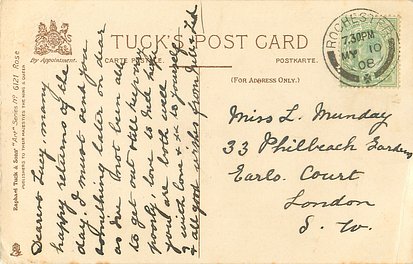 TUCK'S POST CARD
By Appointment.
CARTE POSTALE.
POSTKARTE.
(FOR ADDRESS ONLY.)
ROCHESTER
7.30PM
MY 10
08
Raphael Tuck & Sons' "Art" Series No 6121 Rose
PUBLISHERS TO THEIR MAJESTIES THE KING & QUEEN
Dearest Lucy, many
happy returns of the
day. I must send you
something later on dear
as I've not been able
to get out still keep very
poorly, love to Nell hope
you are both well
with love & xx to yourself
& all good wishes from
Miss L. Munday
33 Philbeach Gardens
Earls. Court
London
S. W.